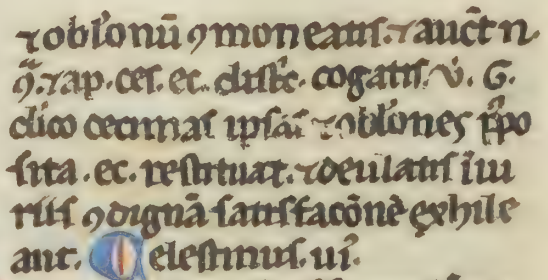 ⁊ oblonū ꝯmoneatis. ⁊ auct̄ n.
ꝯ̄. ⁊ ap. ces. ec. distc̄. cogatis. v̇. G.
dico decimas ip̄as ⁊ oblones p̄po
sita. ec. restituat. ⁊ de illatis iniu
riis ꝯdignā satisfacōnē exhibe
ant. elestinus. iii.